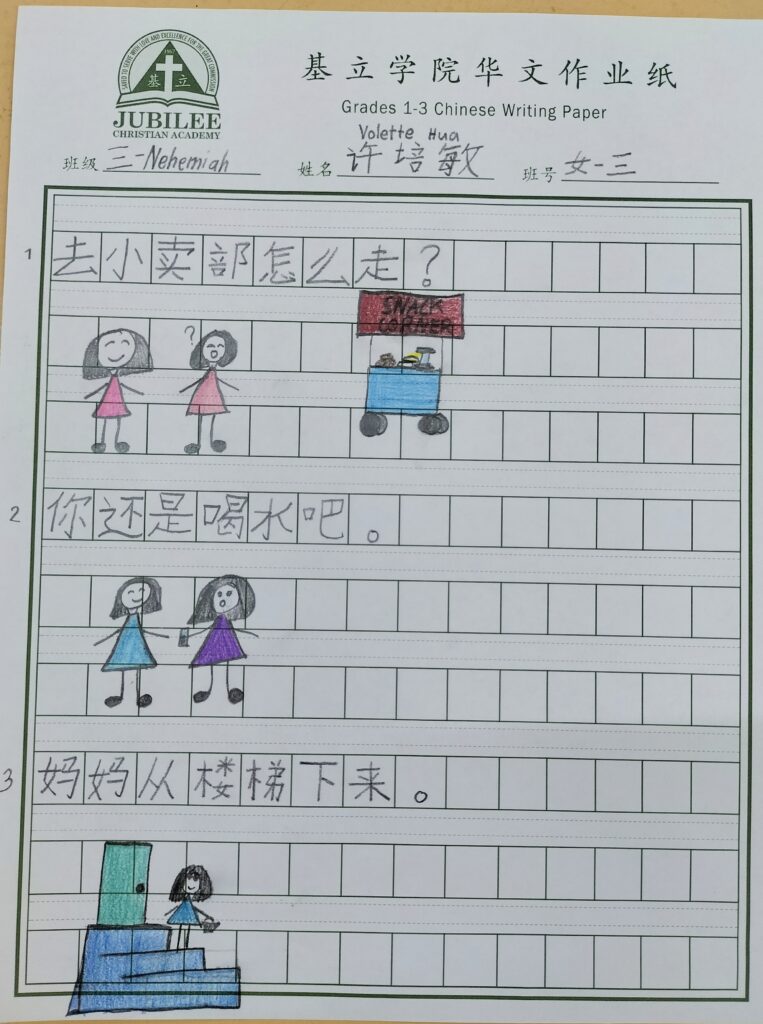 SAVED TO SERVE WITH LOVE AND EXCELLENCE FOR THE GREAT COMMISSION
基 立
JUBILEE
CHRISTIAN ACADEMY
基立学院华文作业纸
Grades 1-3 Chinese Writing Paper
Volette Hua
班级 三-Nehemiah 姓名 许培敏 班号 女-三
1 去小卖部怎么走？
SNACK
CORNER
?
2 你还是喝水吧。
3 妈妈从楼梯下来。